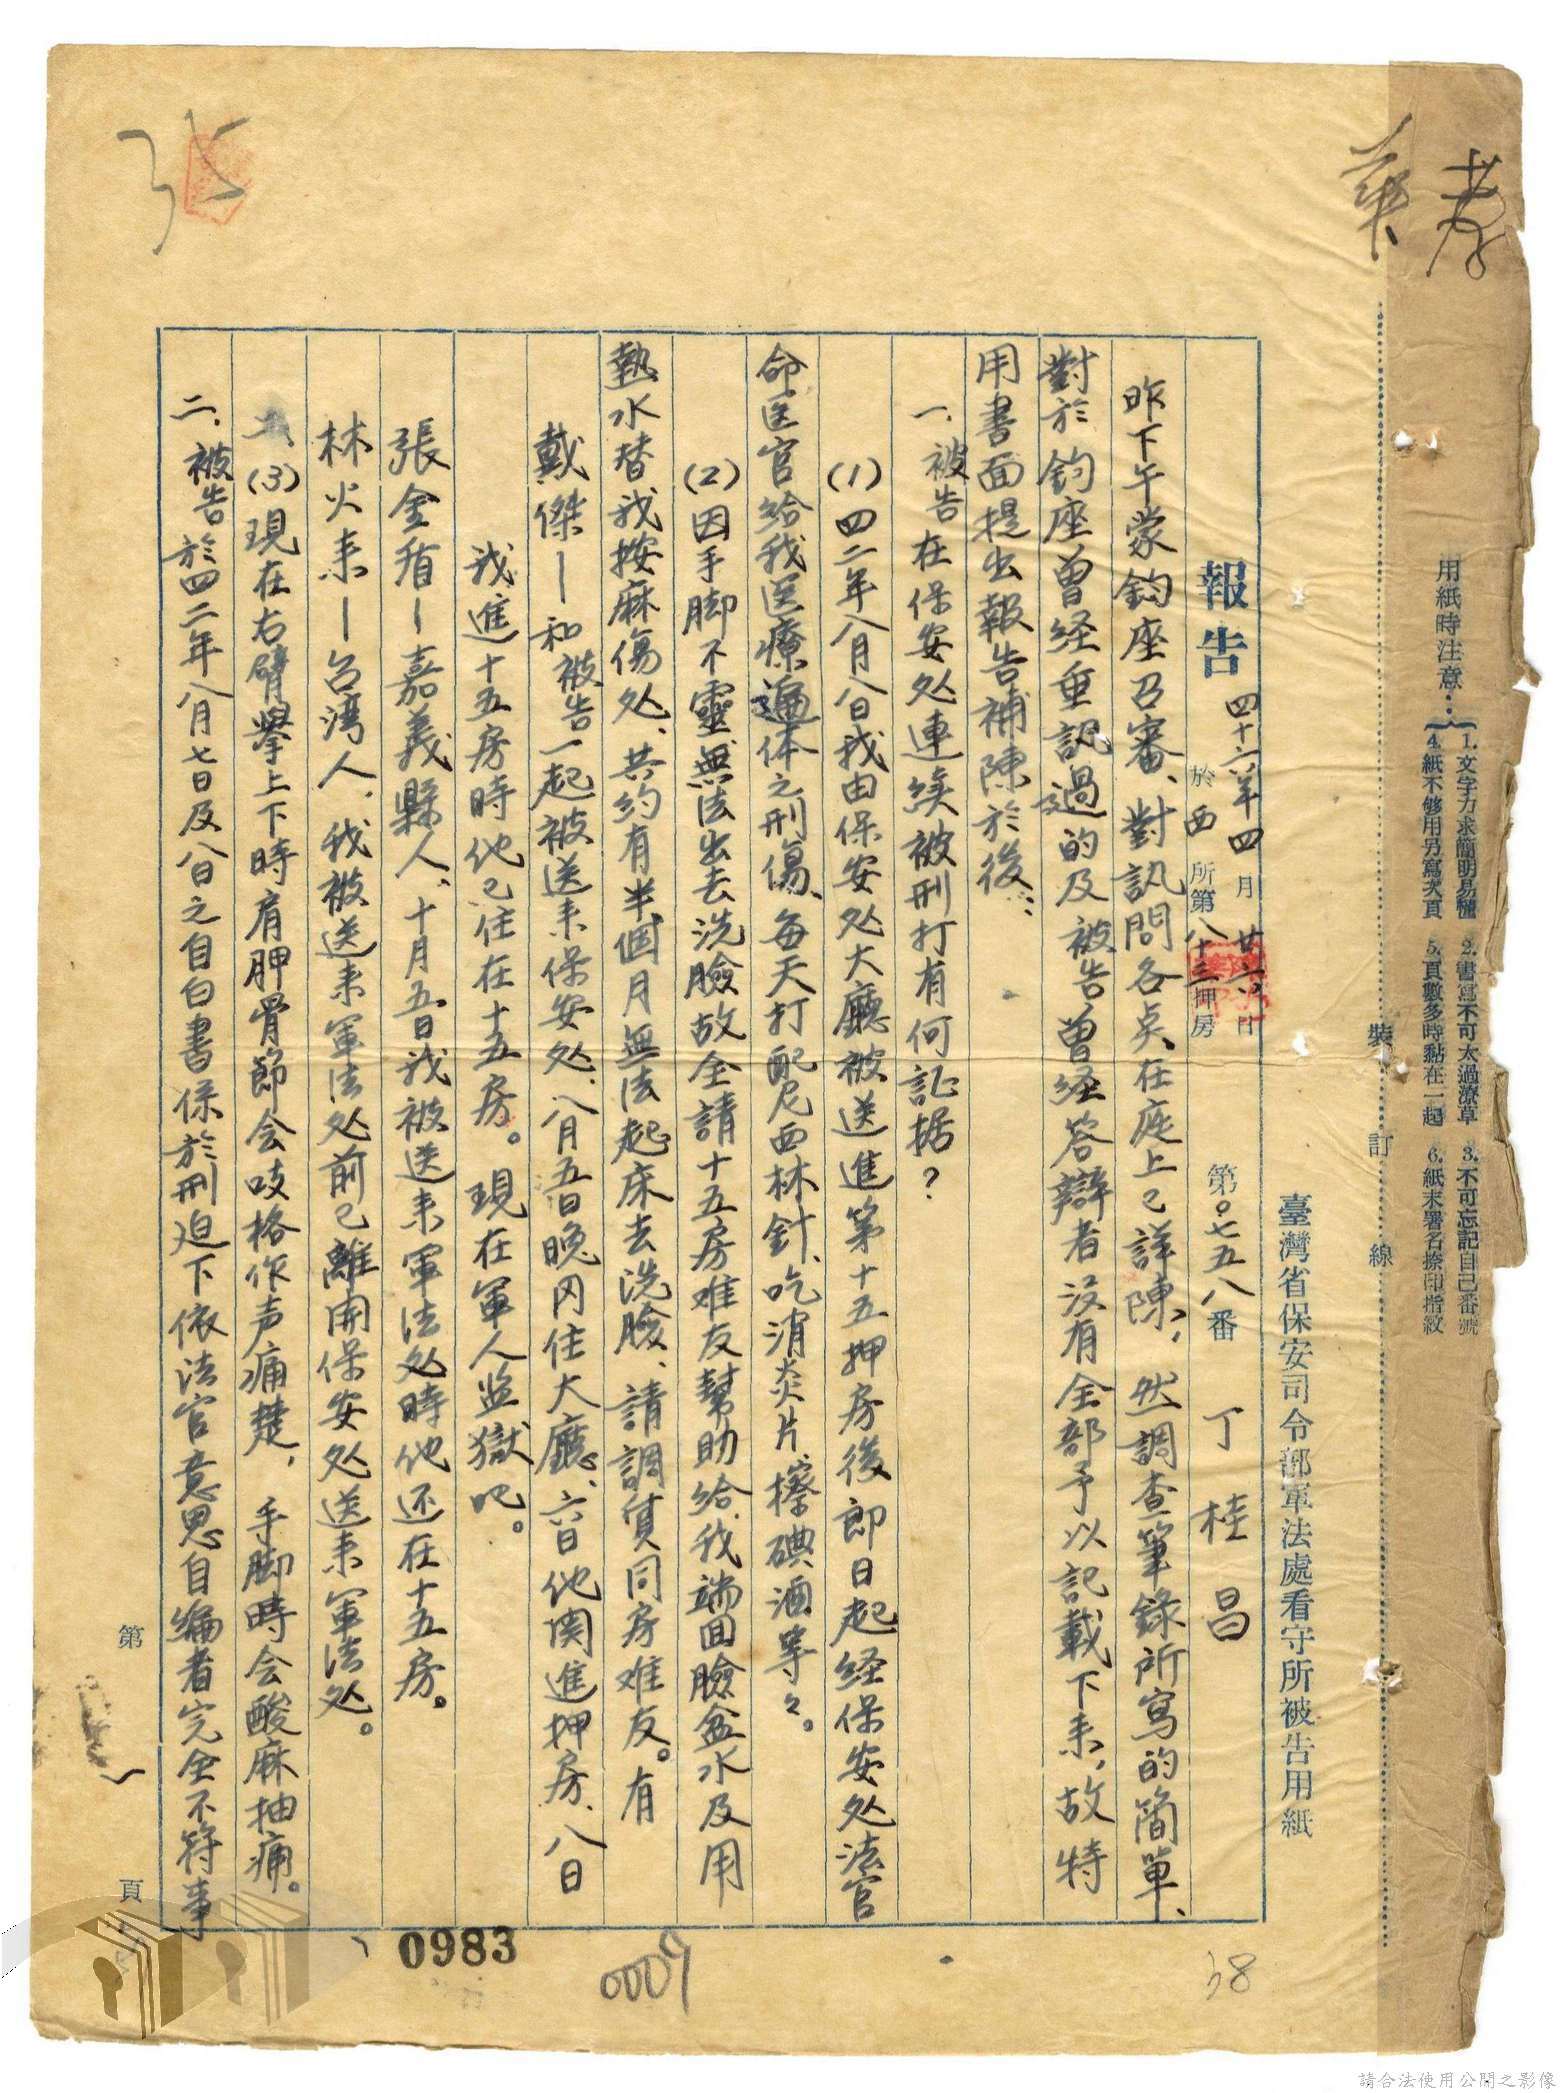 孝
葉
用紙時注意：
1.文字力求簡明易懂 2.書寫不可太過潦草 3.不可忘記自己番號
4.紙不够用另寫天頁 5.頁數多時黏在一起 6.紙末署名捺印指紋
裝 訂 線
臺灣省保安司令部軍法處看守所被告用紙
報告 四十六年四月廿六日
於西所第八十三押房 第0七五八番 丁桂昌
昨下午蒙鈞座召審、對訊問各点在庭上已詳陳，然調查筆錄所寫的簡單、
對於鈞座曾経重訊過的及被告曾経答辯者沒有全部予以記載下来，故特
用書面提出報告補陳於後：
一.被告在保安处連続被刑打有何証据？
(1)四二年八月八日我由保安处大廳被送進第十五押房後即日起経保安处法官
命医官給我医療遍体之刑傷、每天打配尼西林針、吃消炎片、擦碘酒等々。
(2)因手脚不靈無法出去洗臉故全請十五房难友幫助給我端回臉盆水及用
熱水替我按麻傷处、共約有半個月無法起床去洗臉、請調質同房难友。有
戴傑—和被告一起被送来保安处、八月五日晚同住大廳、六日他関進押房、八日
我進十五房時他已住在十五房。現在軍人监獄吧。
張金盾—嘉義縣人、十月五日我被送来軍法处時他还在十五房。
林火来—台湾人，我被送来軍法处前已離開保安处送来軍法处。
(3)現在右臂擧上下時肩胛骨節会吱格作声痛楚，手脚時会酸麻抽痛。
二.被告於四二年八月七日及八日之自白書係於刑迫下依法官意思自編者完全不符事
第 頁
0983
0009
38
請合法使用公開之影像